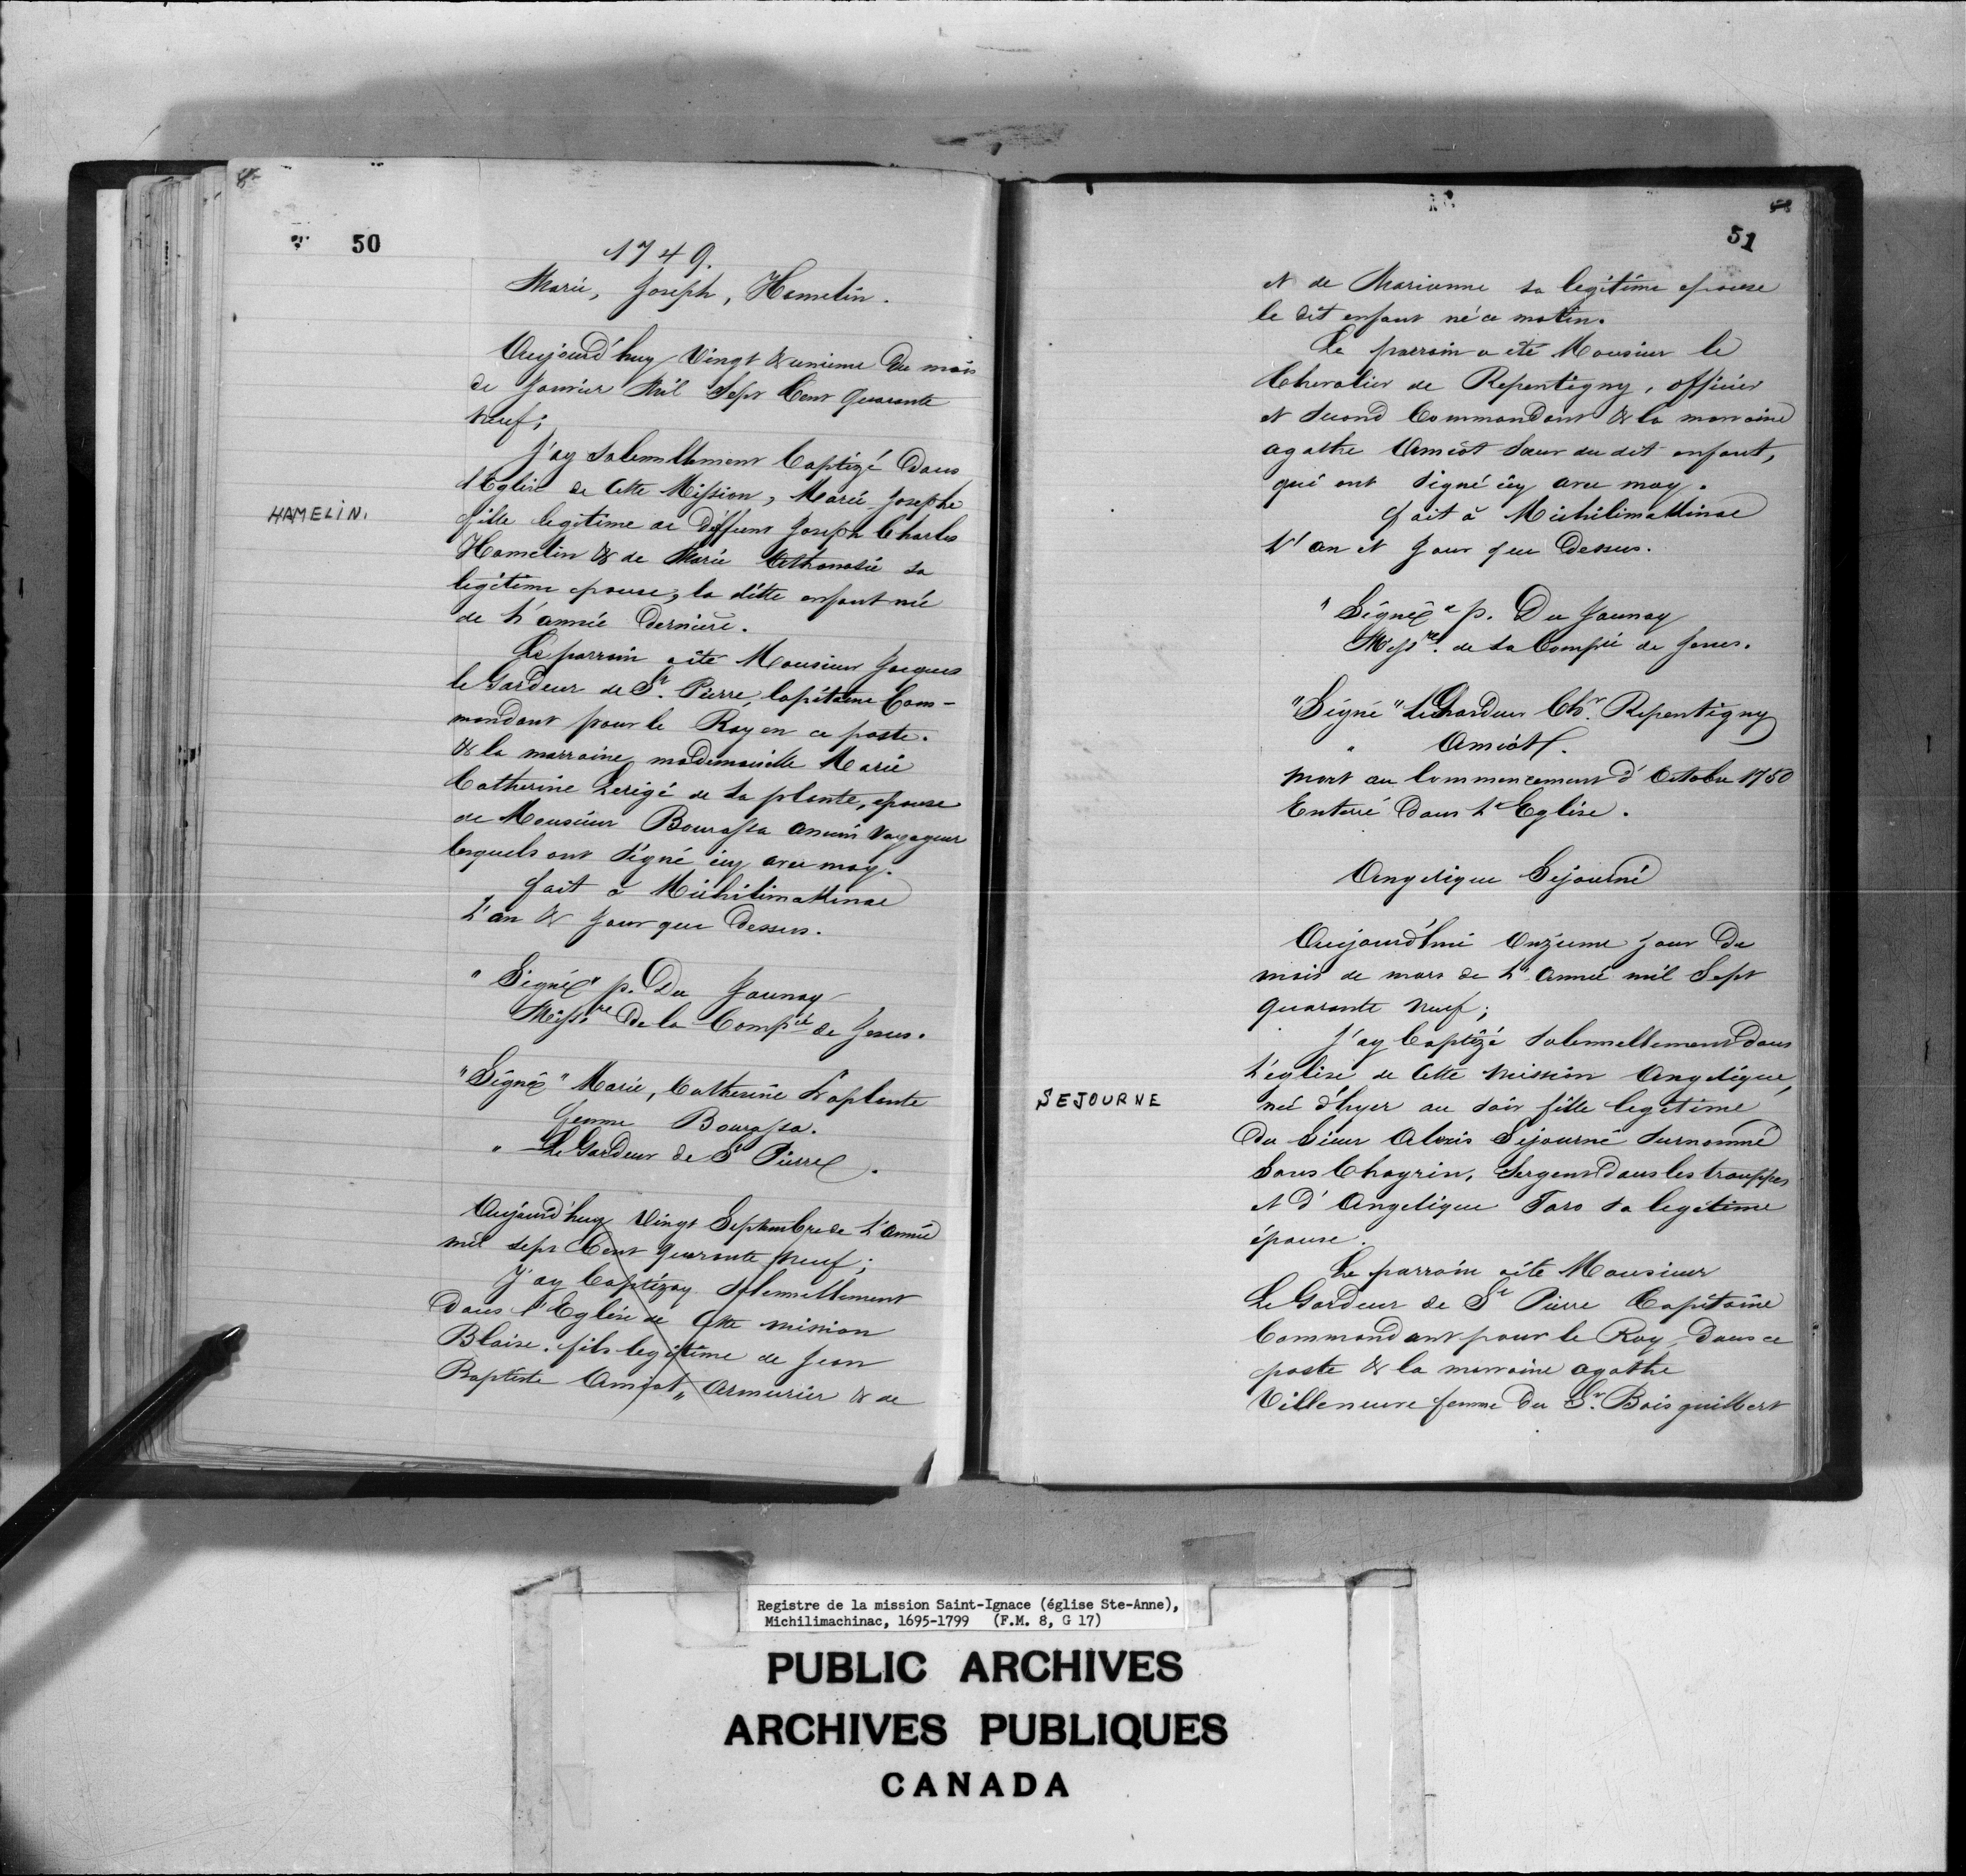 50
1749.
Marie, Joseph, Hamelin.
Aujourd'huy Vingt & unieme Du mois
de Janvier Mil Sept Cent Quarante
neuf;
J'ay Solemnellement Baptizé Dans
l'Eglise de Cette Mission, Marie Josephe
HAMELIN.
fille legitime de Deffunt Joseph Charles
Hamelin & de Marie Athanasie sa
legitime epouse, la ditte enfant née
de L'année Derniere.
Le parrain a été Monsieur Jacques
le Gardeur de St. Pierre, Capitaine Com-
mandant pour le Roy en ce poste.
& la marraine mademoiselle Marie
Catherine Lerigé de La plante, epouse
de Monsieur Bourassa ancien Voyageur
lesquels ont Signé icy avec moy.
fait à Michilimakinac
L'an & Jour que Dessus.
"Signé" p. Du Jaunay
Missre De la Compie de Jesus.
"Signé" Marie, Catherine Laplante
femme Bourassa.
" Le Gardeur de St Pierre.
Aujourd'huy Vingt Septembre de L'année
mil sept Cent quarante neuf;
J'ay Baptizay Solennellement
Dans l'Eglise de Cette mission
Blaise. fils legitime de Jean
Baptiste Amiot, Armurier & de
51
et de Marianne sa legitime epouse
le dit enfant né ce matin.
Le parrain a été Monsieur le
Chevalier de Repentigny, officier
et Second Commandant & la marraine
agathe Amiot Sœur du dit enfant,
qui ont Signé icy avec moy.
fait à Michilimakinac
L'an et Jour que Dessus.
"Signé" p. Du Jaunay
Missre. de La Compie de Jesus.
"Signé" LeGardeur Chr. Repentigny
" Amiot.
mort au Commencement d'Octobre 1750
Enterré Dans L'Eglise.
Angelique Sejourné
Aujourd'hui Onzieme Jour Du
mois de mars de L'Année mil Sept
quarante neuf;
J'ay Baptizé Solennellement dans
L'eglise de Cette mission Angelique,
SEJOURNE
née d'hyer au soir fille legitime
Du Sieur Alexis Sejourné Surnommé
Sans Chagrin, Sergent Dans les trouppes
et D'Angelique Taro sa legitime
épouse.
Le parrain a été Monsieur
Le Gardeur de St Pierre Capitaine
Commandant pour le Roy, Dans ce
poste & la marraine agathe
Villeneuve femme Du Sr. Boisguilbert
Registre de la mission Saint-Ignace (église Ste-Anne),
Michilimachinac, 1695-1799 (F.M. 8, G 17)
PUBLIC ARCHIVES
ARCHIVES PUBLIQUES
CANADA